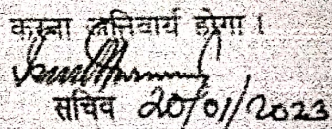 करना अनिवार्य होगा ।
सचिव 20/01/2023